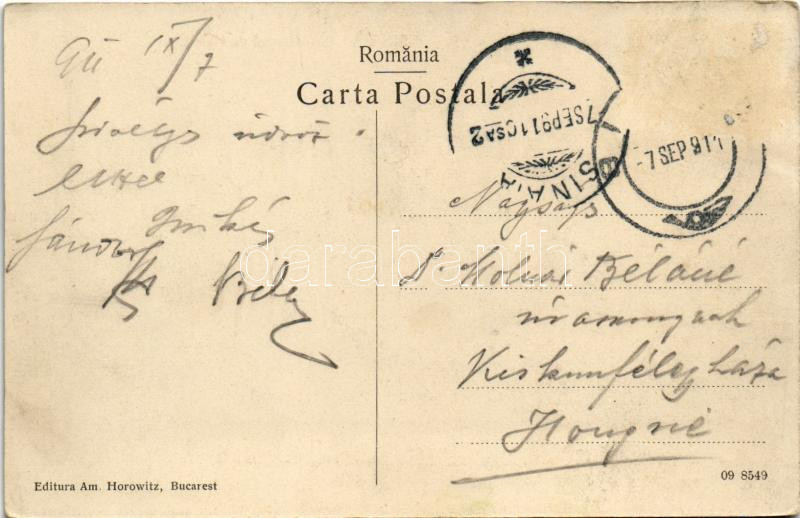 România
Carta Postala
911 IX/7
Szivélyes üdvöz
Sándor
Béla
7 SEP 911 0 CSA 2
SINAIA
-7 SEP 911
Nagysás
Dr Molnár Béláné
úrasszonynak
Kiskunfélegyháza
Hongrie
darabanth
Editura Am. Horowitz, Bucarest
09 8549